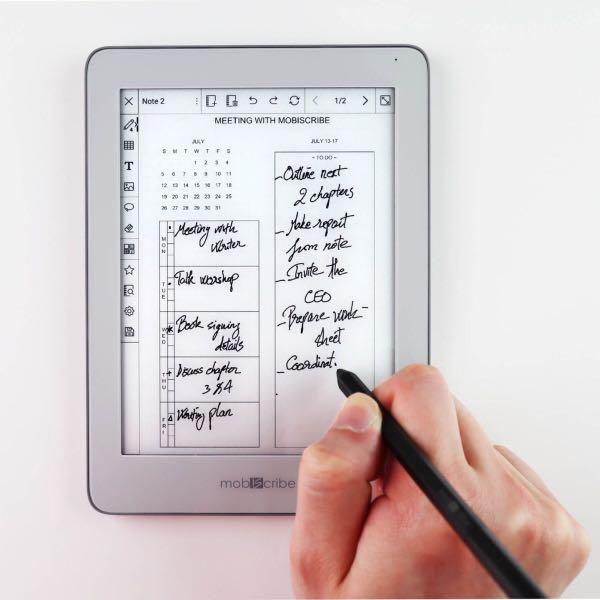 Note 2
1/2
MEETING WITH MOBISCRIBE
JULY
S M T W T F S
1 2 3 4
5 6 7 8 9 10 11
12 13 14 15 16 17 18
19 20 21 22 23 24 25
26 27 28 29 30 31
MON
Meeting with
Writer
TUE
Talk worshop
WED
Book signing
details
THU
Discuss chapter
3 & 4
FRI
Writing plan
JULY 13-17
~ TO DO ~
- Outline next
2 chapters
- Make report
from note
- Invite the
CEO
- Prepare work-
sheet
- Coordinat.
T
mobiscribe